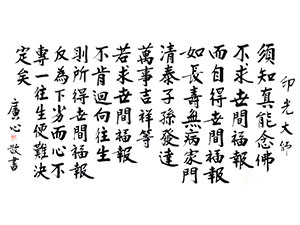 印光大师
须知真能念佛
不求世間福報
而自得世間福報
如長壽無病家門
清泰子孫發達
萬事吉祥等
若求世間福報
不肯迴向往生
則所得世間福報
反為下劣而心不
專一往生便難決
定矣
廣心敬書